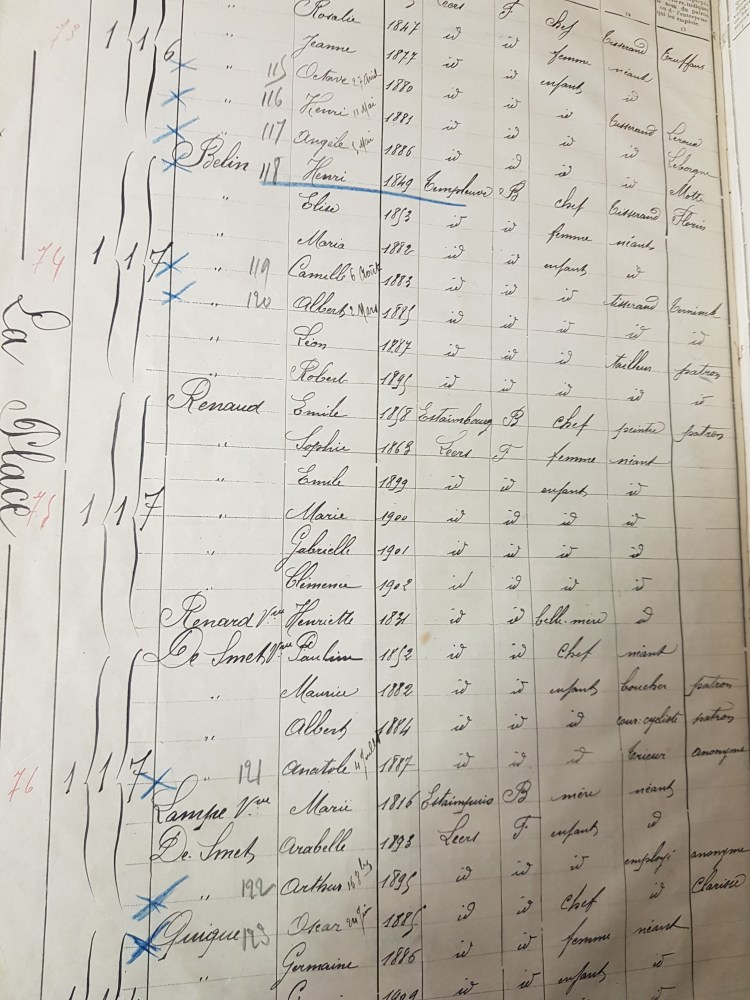 Rosalie 1847 Leers F chef Tisserand Truffaut
" Jeanne 1877 id id femme néant
" 115 Octave 27 avril 1880 id id enfant id
" 116 Henri 11 Mai 1881 id id id Tisserand Leroux
" 117 Angèle Mai 1886 id id id id Leborgne
Belin 118 Henri 1849 Templeuve B chef Tisserand Motte
" Elise 1853 id id femme néant Florin
" Maria 1882 id id enfant id
" 119 Camille 6 Août 1883 id id id tisserand
" 120 Albert 2 Mars 1885 id id id id id
" Léon 1887 id id id tailleur patron
" Robert 1895 id id id id id
Renaud Emile 1858 Estaimbourg B chef peintre patron
" Sophie 1863 Leers F femme néant
" Emile 1899 id id enfant id
" Marie 1900 id id id id
" Gabrielle 1901 id id id id
" Clémence 1902 id id id id
Renard Vve Henriette 1831 id id belle-mère id
De Smet Vve Pauline 1852 id id chef néant
" Maurice 1882 id id enfant boucher patron
" Albert 1884 id id id cour: cycliste patron
" 121 Anatole 1887 id id id trieur anonyme
Lampe Vve Marie 1816 Estaimpuis B mère néant
De Smet Arabelle 1893 Leers F enfant id
" 122 Arthur 1895 id id id employé anonyme
Quique 123 Oscar 1885 id id chef id Clarisse
" Germaine 1886 id id femme néant
1909 id id enfant id
La Place
74
75
76
1 1 6
1 1 7
1 1 7
1 1 7